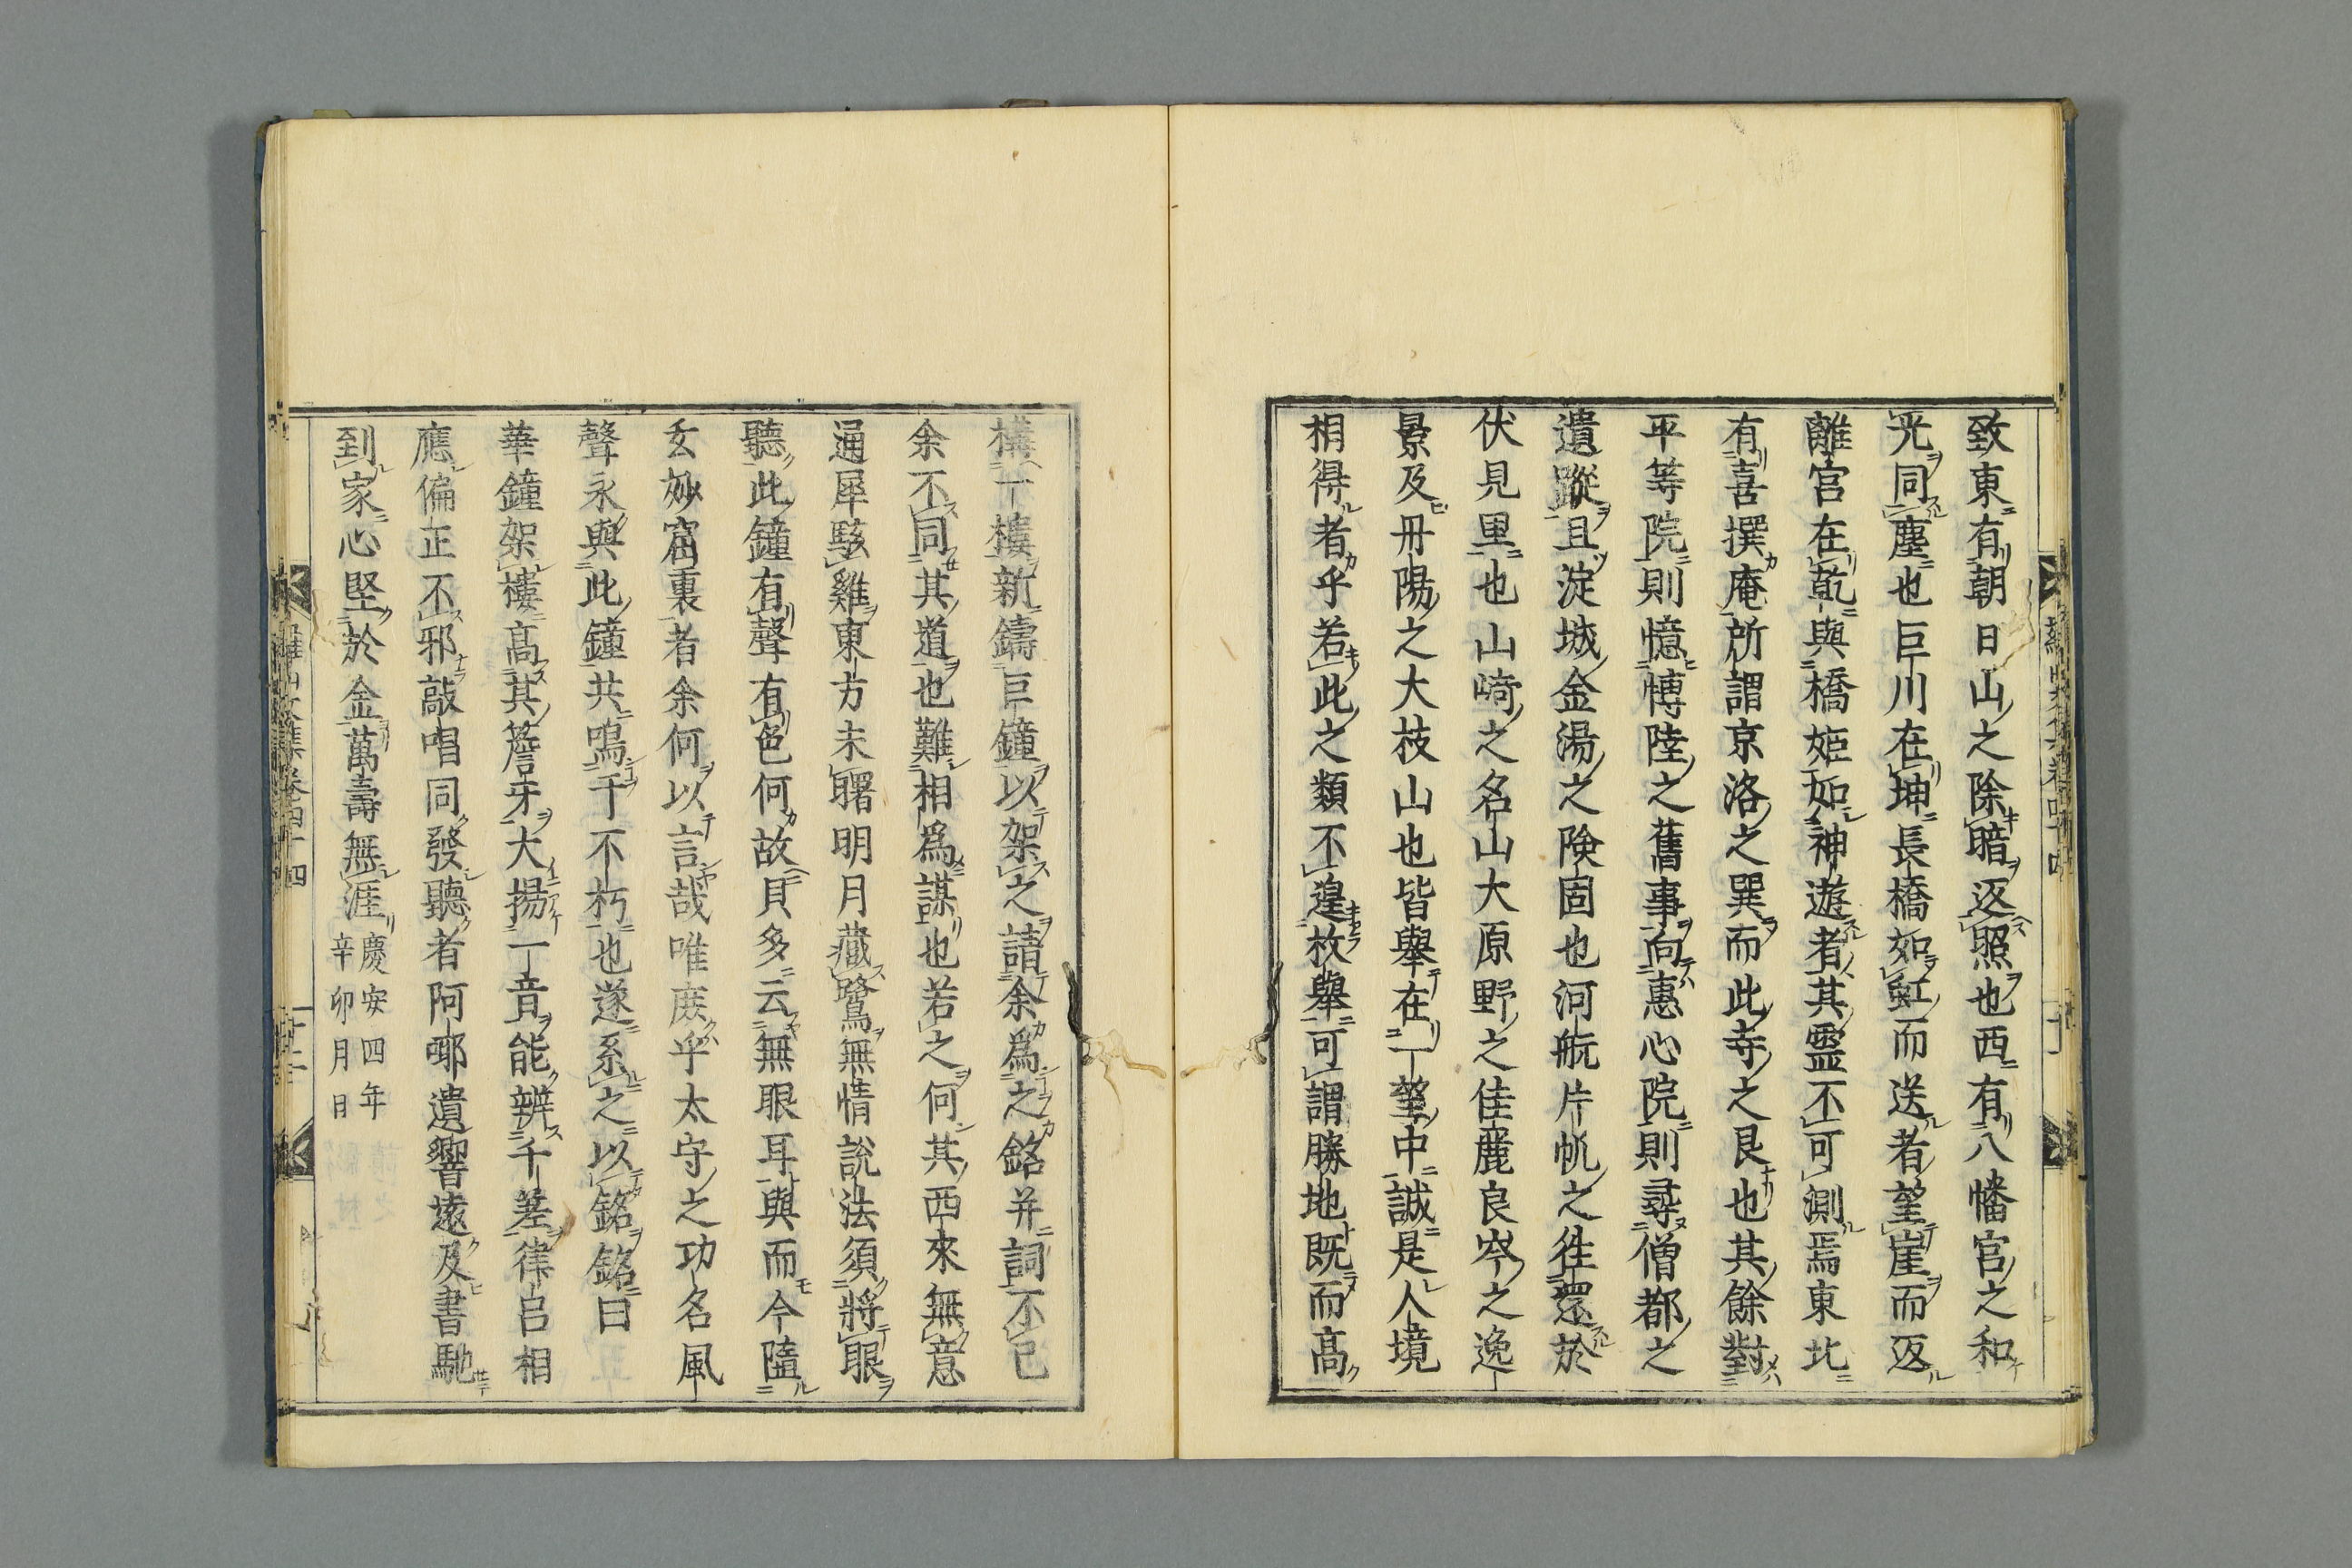 致東有朝日山之除暗返照也西有八幡宮之和
光同塵也巨川在坤長橋如虹而送者望崖而返
離宮在乾與橋姫如神遊者其霊不可測焉東北
有喜撰庵所謂京洛之巽而此寺之艮也其餘對
平等院則憶博陸之舊事向惠心院則尋僧都之
遺蹤且淀城金湯之険固也河航片帆之徃還於
伏見里也山崎之名山大原野之佳麗良岑之逸
景及丹陽之大枝山也皆舉在一望中誠是人境
相得者乎若此之類不遑枚舉可謂勝地既而髙
構一樓新鑄巨鐘以架之請余爲之銘并詞不已
余不同其道也難相爲謀也若之何其西來無意
通犀駭雞東方未曙明月藏鷺無情說法須將眼
聽此鐘有聲有色何故貝多云無眼耳與而今隨
玄妙窟裏者余何以言哉唯庶乎太守之功名風
聲永與此鐘共鳴千不朽也遂系之以銘銘曰
華鐘架樓髙其簷牙大揚一音能辨千差律呂相
應偏正不邪敲唱同發聽者阿哪遺響遠及書馳
到家心堅於金萬壽無涯
慶安四年
辛卯月日
羅山文集卷四十四
十二